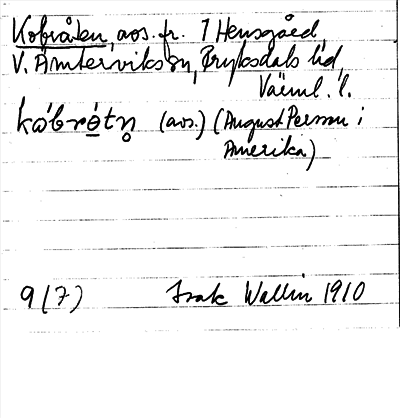 Kobråten, avs. fr. 1 Hensgård,
V. Ämterviks sn, Fryksdals hd,
Värml. l.
kábró̱tn̥ (avs.) (August Persson i
Amerika)
9 (7) Isak Wallin 1910